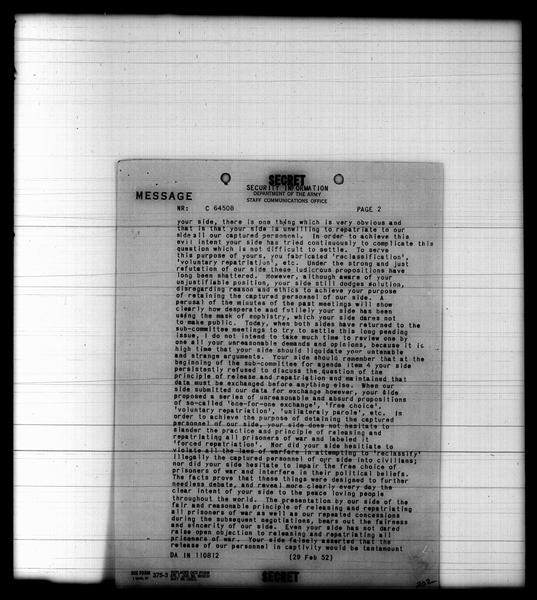 SECRET
SECURITY INFORMATION
DEPARTMENT OF THE ARMY
STAFF COMMUNICATIONS OFFICE
MESSAGE
NR: C 64508 PAGE 2
your side, there is one thing which is very obvious and
that is that your side is unwilling to repatriate to our
side all our captured personnel. In order to achieve this
evil intent your side has tried continuously to complicate this
question which is not difficult to settle. To serve
this purpose of yours, you fabricated 'reclassification',
'voluntary repatriation', etc. Under the strong and just
refutation of our side these ludicrous propositions have
long been shattered. However, although aware of your
unjustifiable position, your side still dodges solution,
disregarding reason and ethics to achieve your purpose
of retaining the captured personnel of our side. A
perusal of the minutes of the past meetings will show
clearly how desperate and futilely your side has been
using the mask of sophistry, which your side dares not
to make public. Today, when both sides have returned to the
sub-committee meetings to try to settle this long pending
issue, I do not intend to take much time to review one by
one all your unreasonable demands and opinions, because it is
high time that your side should liquidate your untenable
and strange arguments. Your side should remember that at the
beginning of the sub-committee for agenda item 4 your side
persistently refused to discuss the question of the
principle of release and repatriation and maintained that
data must be exchanged before anything else. When our
side submitted our data for exchange however, your side
proposed a series of unreasonable and absurd propositions
of so-called 'one-for-one exchange', 'free choice',
'voluntary repatriation', 'unilateral parole', etc. In
order to achieve the purpose of detaining the captured
personnel of our side, your side does not hesitate to
slander the practice and principle of releasing and
repatriating all prisoners of war and labeled it
'forced repatriation'. Nor did your side hesitate to
violate all the laws of warfare in attempting to 'reclassify'
illegally the captured personnel of our side into civilians;
nor did your side hesitate to impair the free choice of
prisoners of war and interfere in their political beliefs.
The facts prove that these things were designed to further
needless debate, and reveal more clearly every day the
clear intent of your side to the peace loving people
throughout the world. The presentation by our side of the
fair and reasonable principle of releasing and repatriating
all prisoners of war as well as our repeated concessions
during the subsequent negotiations, bears out the fairness
and sincerity of our side. Even your side has not dared
raise open objection to releasing and repatriating all
prisoners of war. Your side falsely asserted that the
release of our personnel in captivity would be tantamount
DA IN 110812 (29 Feb 52)
375-3
SECRET